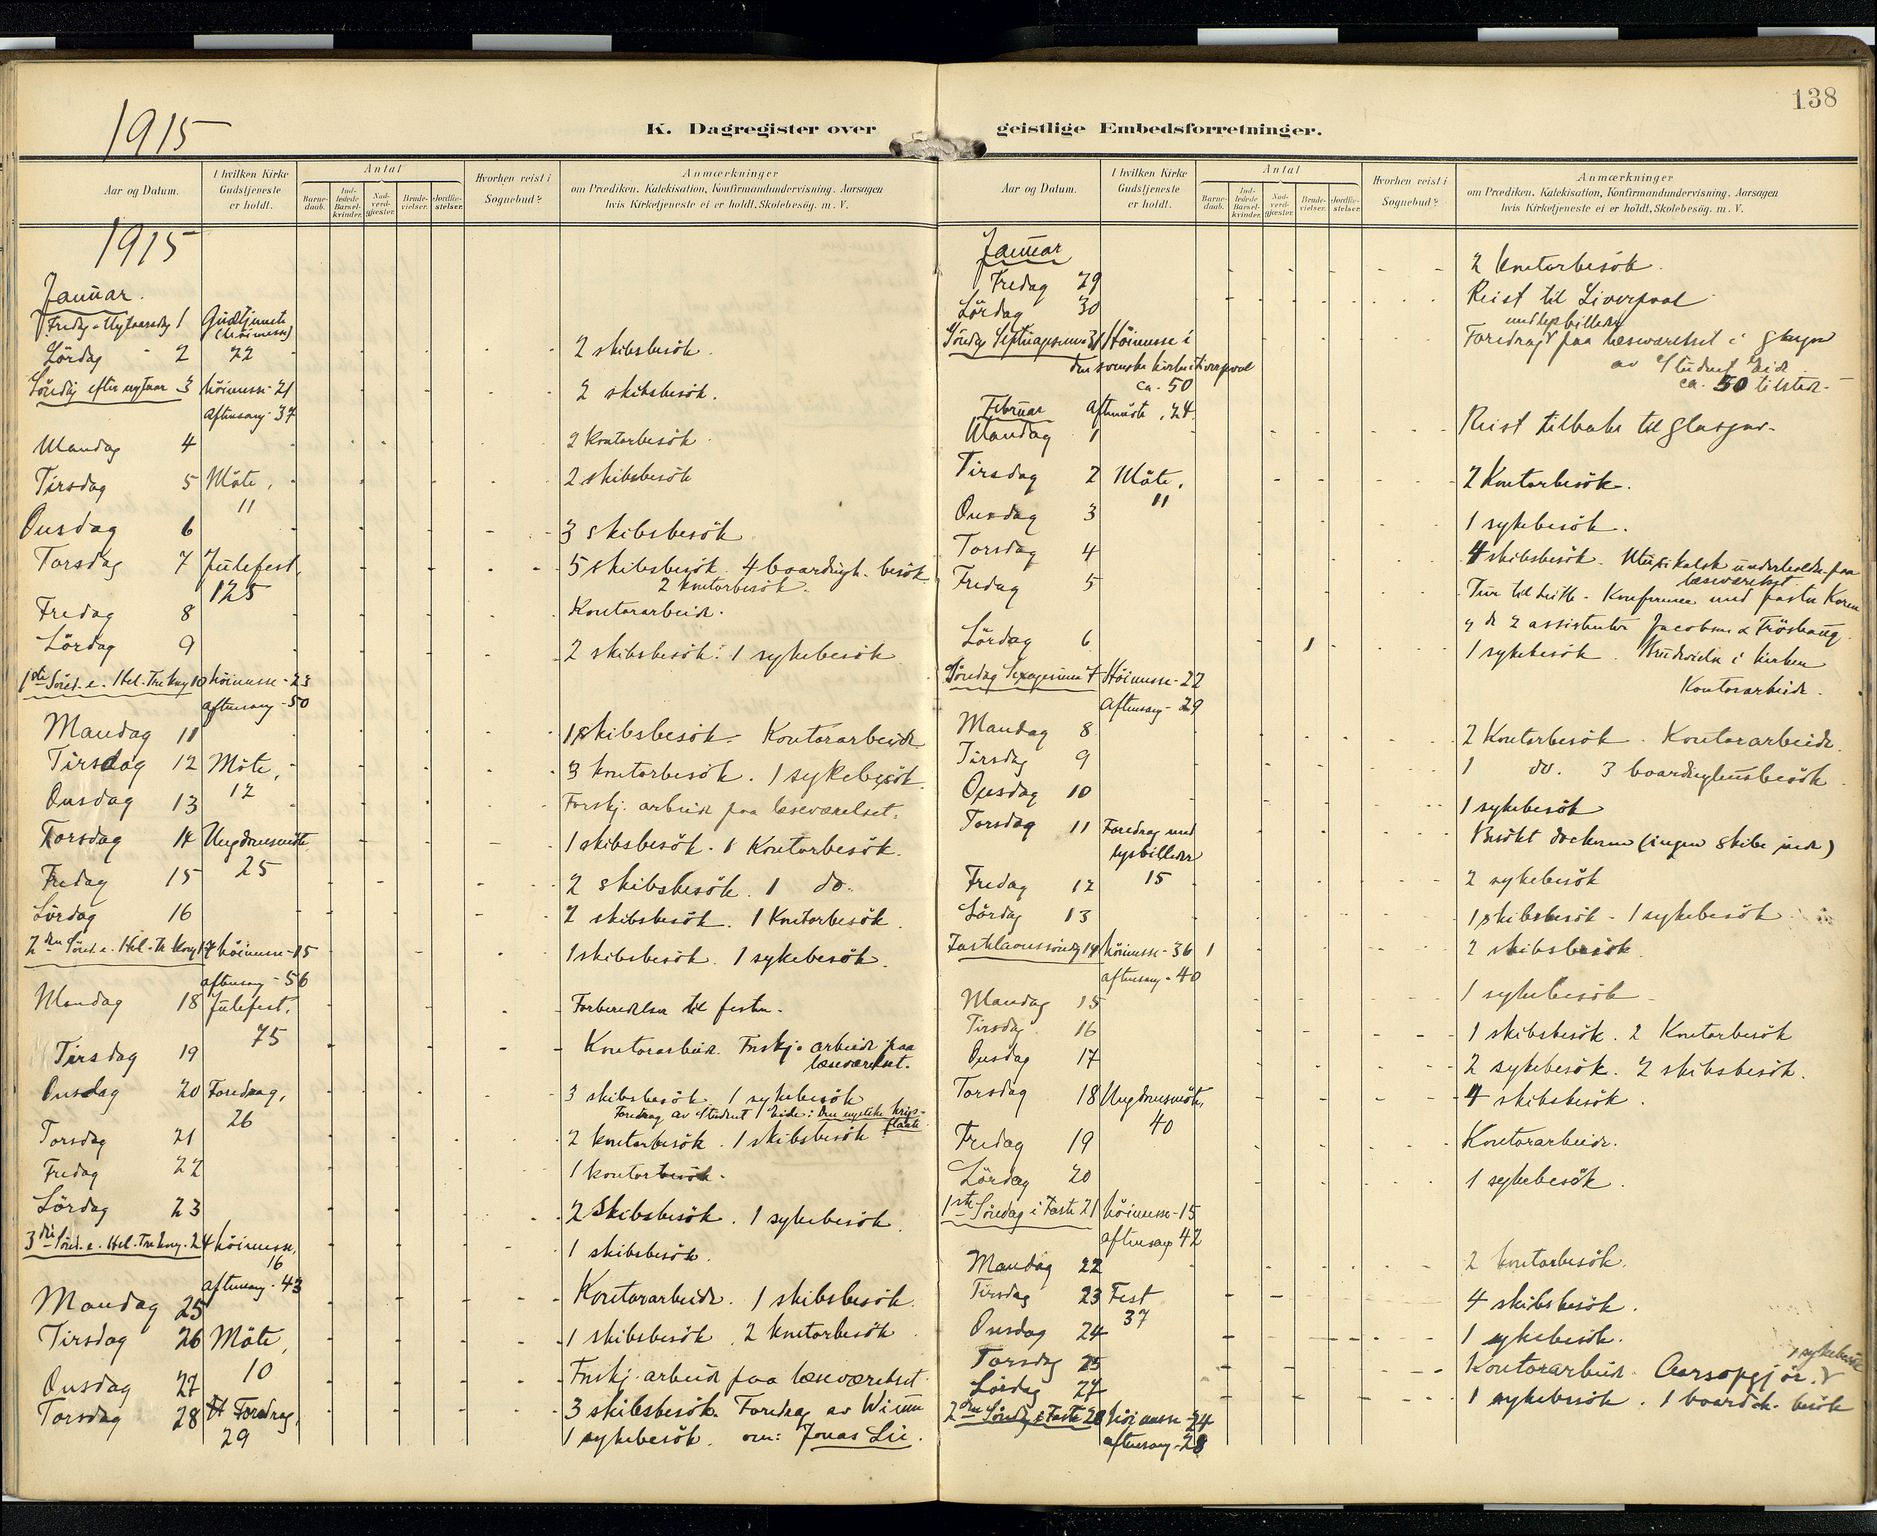 138
1915
K. Dagregister over geistlige Embedsforretninger.
Aar og Datum.
I hvilken Kirke Gudstjeneste er holdt.
Antal
Barnedaab.
Indledede Barselkvinder.
Nadverdgjester.
Brudevielser.
Jordfæstelser.
Hvorhen reist i Sognebud?
Anmærkninger
om Prædiken, Katekisation, Konfirmandundervisning, Aarsagen
hvis Kirketjeneste ei er holdt, Skolebesög. m. V.
1915
Januar.
Fredag - Nytaarsdag 1 Gudstjeneste (Höimesse)
Lördag 2 22 2 skibsbesök.
Söndag efter nytaar 3 höimesse - 21 2 skibsbesök.
aftensang - 37
Mandag 4 2 kontorbesök.
Tirsdag 5 Möte, 2 skibsbesök
11
Onsdag 6 3 skibsbesök
Torsdag 7 Julefest, 5 skibsbesök. 4 boardingh. besök
125 2 kontorbesök.
Fredag 8 Kontorarbeide.
Lördag 9 2 skibsbesök. 1 sykebesök
1ste Sönd. e. Hel. Tre Kong 10 höimesse - 23
aftensang - 50
Mandag 11 1 skibsbesök. Kontorarbeide
Tirsdag 12 Möte, 3 kontorbesök. 1 sykebesök
12
Onsdag 13 Forskj. arbeide paa læseværelset.
Torsdag 14 Ungdomsmöte 1 skibsbesök. 1 Kontorbesök.
25
Fredag 15 2 skibsbesök. 1 do.
Lördag 16 2 skibsbesök. 1 Kontorbesök.
2den Sönd. e. Hel. Tre Kong 17 höimesse - 15 1 skibsbesök. 1 sykebesök.
aftensang - 56
Mandag 18 Julefest, Forberedelser til festen.
75
Tirsdag 19 Kontorarbeide. Forskj. arbeide paa
læseværelset.
Onsdag 20 Foredrag, 3 skibsbesök. 1 sykebesök
26 Foredrag av Student Eide: Den mystiske
Torsdag 21 2 kontorbesök. 1 skibsbesök
Fredag 22 1 kontorbesök.
Lördag 23 2 skibsbesök. 1 sykebesök.
3die Sönd. e. Hel. Tre Kong. 24 höimesse, 1 skibsbesök.
16
aftensang - 43
Mandag 25 Kontorarbeide. 1 skibsbesök.
Tirsdag 26 Möte, 1 skibsbesök. 2 kontorbesök
10
Onsdag 27 Forskj. arbeide paa læseværelset.
Torsdag 28 Foredrag, 3 skibsbesök. Foredrag av
29 1 sykebesök. om: Jonas Lie.
Aar og Datum.
I hvilken Kirke Gudstjeneste er holdt.
Antal
Barnedaab.
Indledede Barselkvinder.
Nadverdgjester.
Brudevielser.
Jordfæstelser.
Hvorhen reist i Sognebud?
Anmærkninger
om Prædiken, Katekisation, Konfirmandundervisning, Aarsagen
hvis Kirketjeneste ei er holdt, Skolebesög. m. V.
Januar
Fredag 29 2 kontorbesök.
Lördag 30 Reist til Liverpool
Söndag Septuagesima 31 Höimesse i Foredrag med lysbilleder paa læseværelset i Glasgow
den svenske kirke i Liverpool av Student Eide
ca. 50 ca. 50 tilstede
Februar aftenmöte, 24.
Mandag 1 Reist tilbake til Glasgow.
Tirsdag 2 Möte, 2 Kontorbesök.
11
Onsdag 3 1 sykebesök.
Torsdag 4 4 skibsbesök. Musikalsk underholdn. paa
læseværelset.
Fredag 5 Tur til Leith. Konference med pastor Koren
og de 2 assistenter Jacobsen & Fröshaug.
Lördag 6 1 1 sykebesök. Brudvielse i kirken
Söndag Sexagesima 7 Höimesse - 22 Kontorarbeide.
aftensang - 29
Mandag 8 2 Kontorbesök. Kontorarbeide.
Tirsdag 9 1 do. 3 boardinghusbesök
Onsdag 10 1 sykebesök
Torsdag 11 Foredrag med Besökt dockerne (ingen skibe inde)
lysbilleder
15
Fredag 12 2 sykebesök
Lördag 13 1 skibsbesök - 1 sykebesök
Fastelavnssöndag 14 höimesse - 36 1 2 skibsbesök.
aftensang - 40
Mandag 15 1 sykebesök
Tirsdag 16 1 skibsbesök. 2 Kontorbesök
Onsdag 17 2 sykebesök. 2 skibsbesök.
Torsdag 18 Ungdomsmöte, 4 skibsbesök.
40
Fredag 19 Kontorarbeide.
Lördag 20 1 sykebesök.
1ste Söndag i Faste 21 höimesse - 15
aftensang 42
Mandag 22 2 kontorbesök.
Tirsdag 23 Fest 4 skibsbesök.
37
Onsdag 24 1 sykebesök.
Torsdag 25 Kontorarbeid. Aarsopgjör. 1 sykebesök
Lördag 27 1 sykebesök. 1 boardh. besök
2den Söndag i Faste 28 höimesse - 24
aftensang - 28